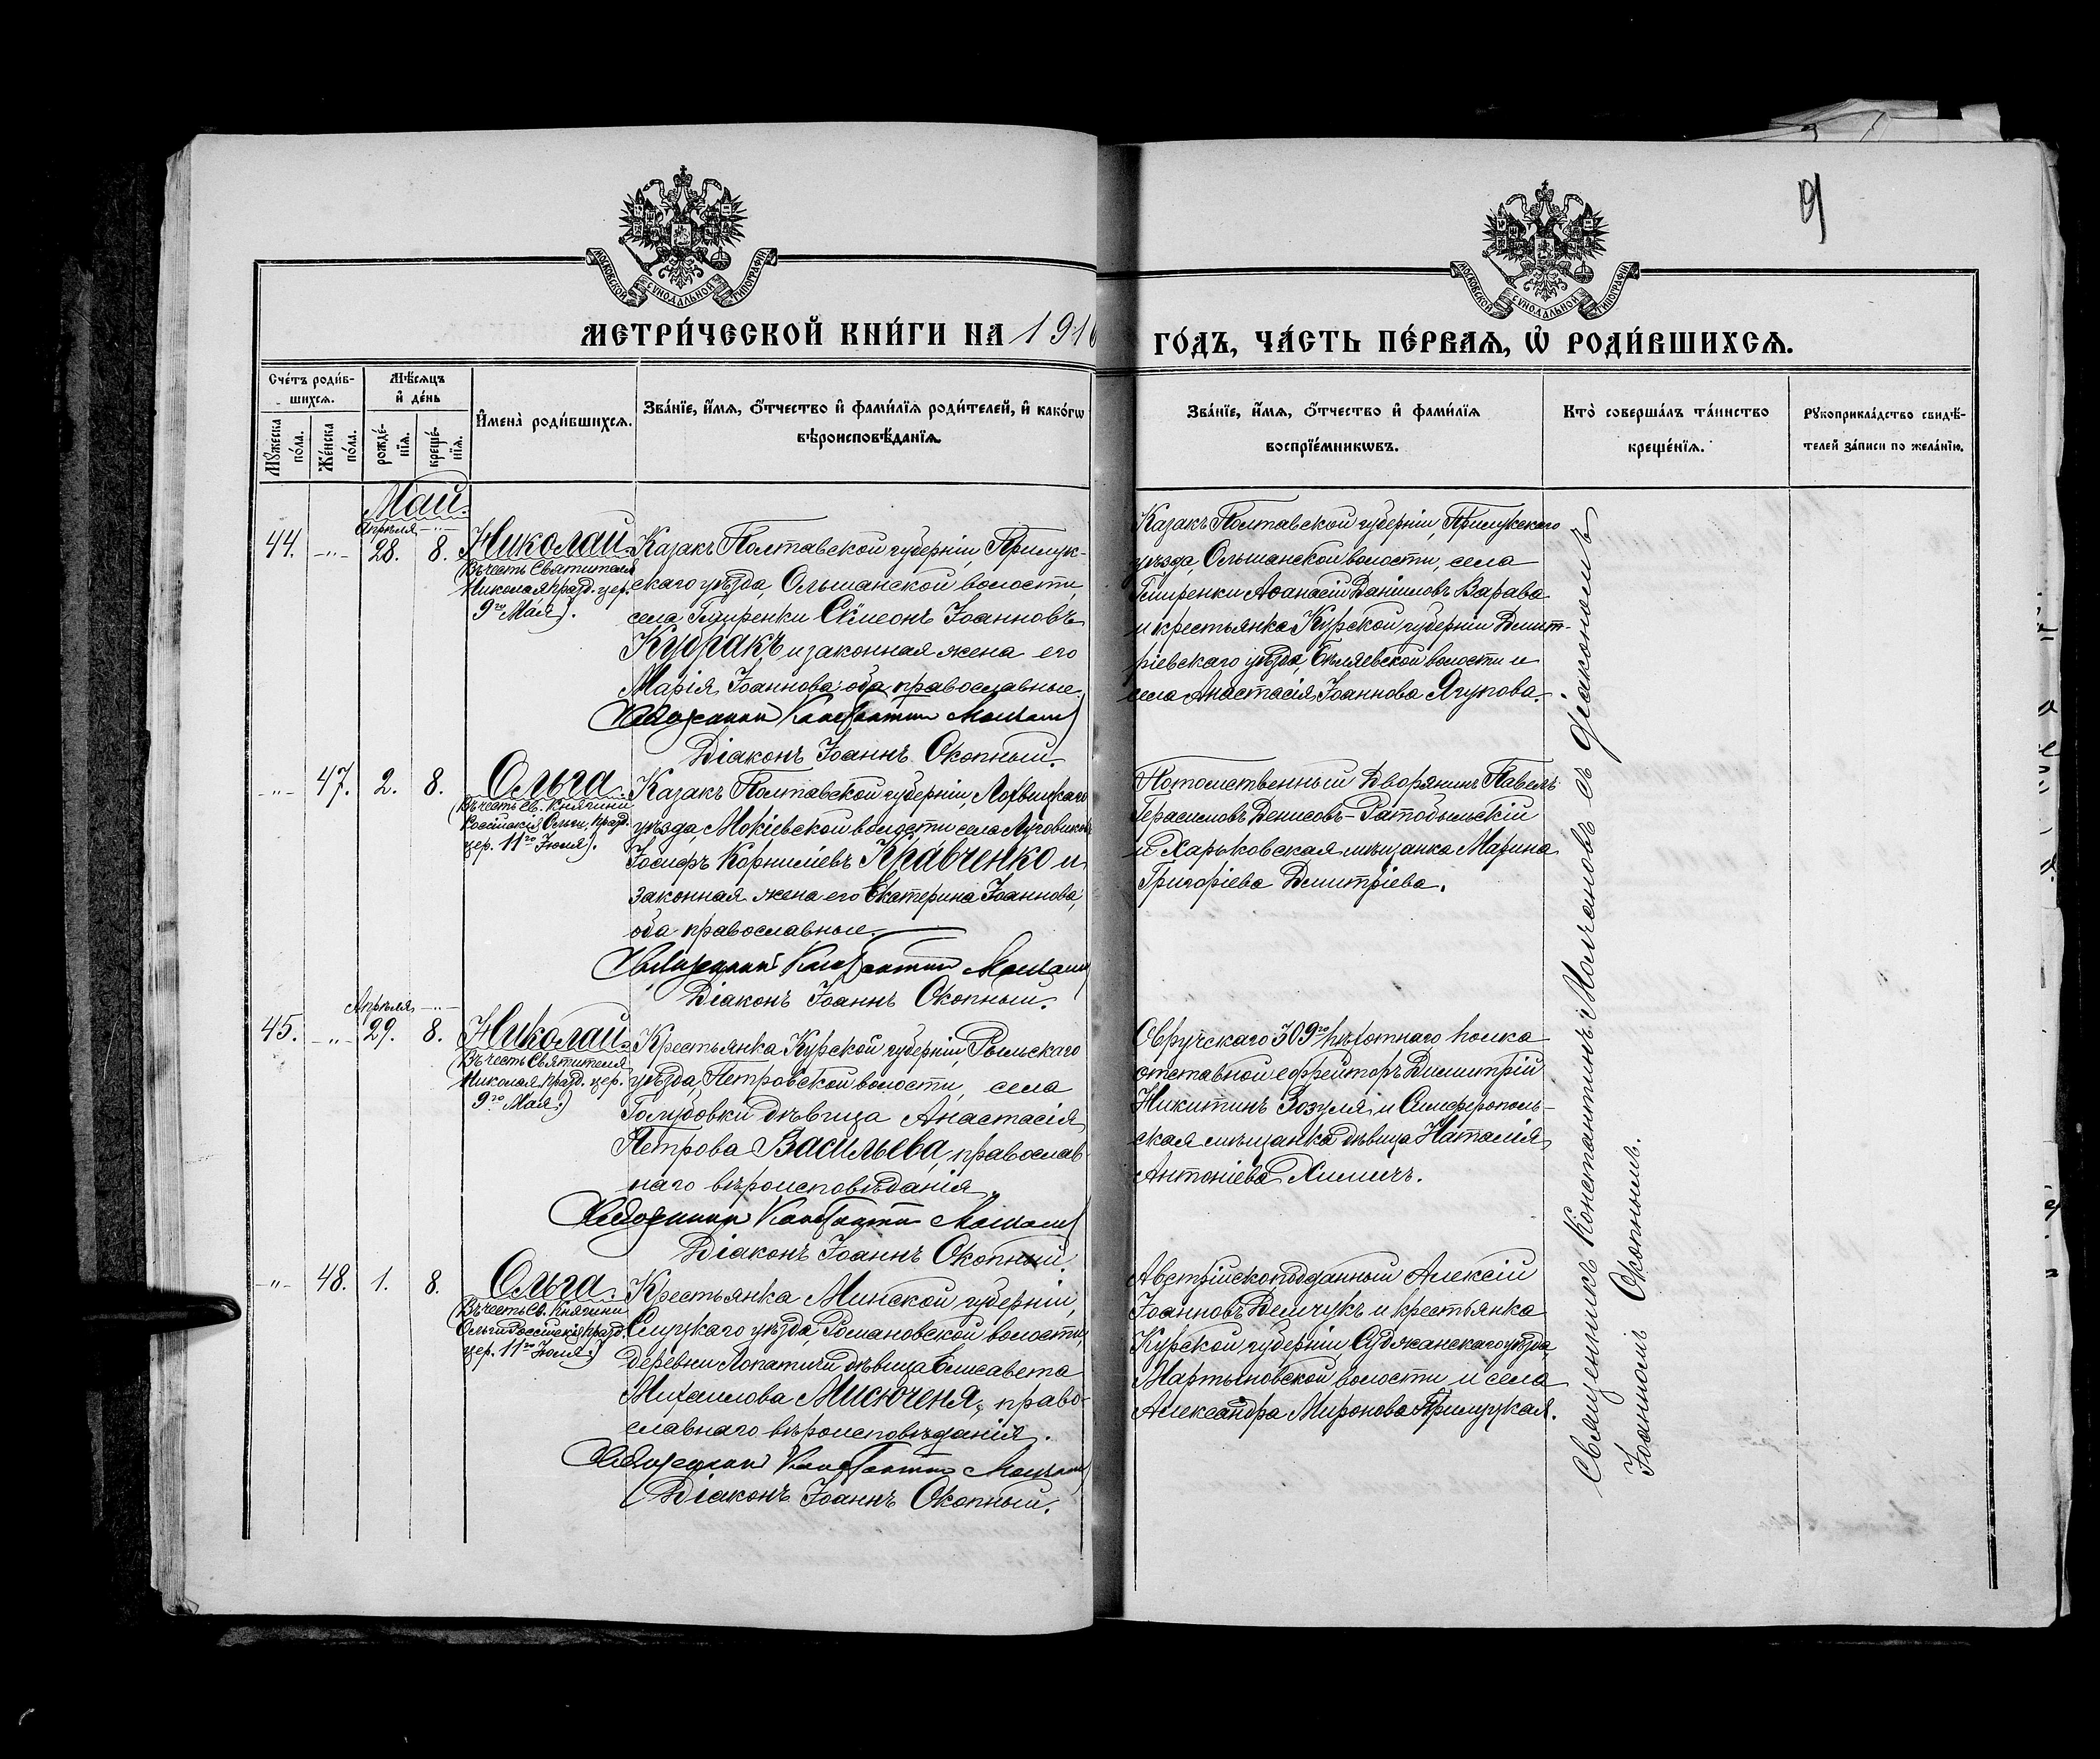 МОСКОВСКОЙ СѴНОДАЛЬНОЙ ТИПОГРАФІИ
МОСКОВСКОЙ СѴНОДАЛЬНОЙ ТИПОГРАФІИ
9
МЕТРИ́ЧЕСКОЙ КНИ́ГИ НА 1916
ГО́ДЪ, ЧА́СТЬ ПЕ́РВАЯ, Ѽ РОДИ́ВШИХСЯ.
Сче́тъ роди́в-
шихся.
Мѣ́сяцъ
и҆ де́нь
Мꙋ́жеска
по́ла.
Же́нска
по́ла.
рожде́-
нїя.
креще́-
нїя.
И҆мена̀ роди́вшихся.
Зва́нїе, и҆́мя, ѻ҆́тчество и҆ фами́лїя роди́телей, и҆ како́гѡ
вѣроисповѣ́данїя.
Зва́нїе, и҆́мя, ѻ҆́тчество и҆ фами́лїя
воспрїе́мникѡвъ.
Кто̀ соверша́лъ та́инство
креще́нїя.
Рꙋкоприкла́дство свидѣ́-
телей за́писи по жела́нїю.
Май.
Апрѣля -"-
44. -"- 28. 8. Николай
(Въ честь Святителя
Николая празд. цер.
9го Мая).
Казакъ Полтавской губерніи, Прилук-
скаго уѣзда, Ольшанской волости,
села Гмиренки Сѵмеонъ Іоанновъ
Кубракъ и законная жена его
Марія Іоаннова, оба православные.
Священникъ Константинъ
Діаконъ Іоаннъ Окопный.
Казакъ Полтавской губерніи, Прилукскаго
уѣзда, Ольшанской волости, села
Гмиренки Аѳанасій Даніиловъ Варава
и крестьянка Курской губерніи Дмит-
ріевскаго уѣзда, Бѣляевской волости и
села Анастасія Іоаннова Ягупова.
-"- 47. 2. 8. Ольга.
(Въ честь Св. Княгини
Россійскія Ольги, празд.
цер. 11го Іюля).
Казакъ Полтавской губерніи, Лохвицкаго
уѣзда, Мокіевской волости села Луговиковъ
Іосифъ Корниліевъ Кравченко и
законная жена его Екатерина Іоаннова,
оба православные.
Священникъ Константинъ
Діаконъ Іоаннъ Окопный.
Потомственный Дворянинъ Павелъ
Герасимовъ Денисовъ-Ратобыльскій
и Харьковская мѣщанка Марина
Григоріева Дмитріева.
Апрѣля -"-
45. -"- 29. 8. Николай
(Въ честь Святителя
Николая празд. цер.
9го Мая.)
Крестьянка Курской губерніи, Рыльскаго
уѣзда, Петровской волости, села
Голубовки дѣвица Анастасія
Петрова Васильева, православ-
наго вѣроисповѣданія.
Священникъ Константинъ
Діаконъ Іоаннъ Окопный.
Овручскаго 309го пѣхотнаго полка
отставной ефрейторъ Димитрій
Никитинъ Зозуля и Симферополь-
ская мѣщанка дѣвица Наталія
Антоніева Химичъ.
-"- 48. 1. 8. Ольга.
(Въ честь Св. Княгини
Ольги Россійскія празд.
цер. 11го Іюля.)
Крестьянка Минской губерніи,
Слуцкаго уѣзда, Романовской волости,
деревни Лопатичи дѣвица Елисавета
Михаилова Мисюченя, право-
славнаго вѣроисповѣданія.
Священникъ Константинъ
Діаконъ Іоаннъ Окопный.
Австрійскоподданный Алексій
Іоанновъ Демчукъ и крестьянка
Курской губерніи, Суджанскаго уѣзда,
Мартыновской волости и села
Александра Миронова Прилуцкая.
Священникъ Константинъ Молчановъ съ діакономъ
Іоанномъ Окопнымъ.